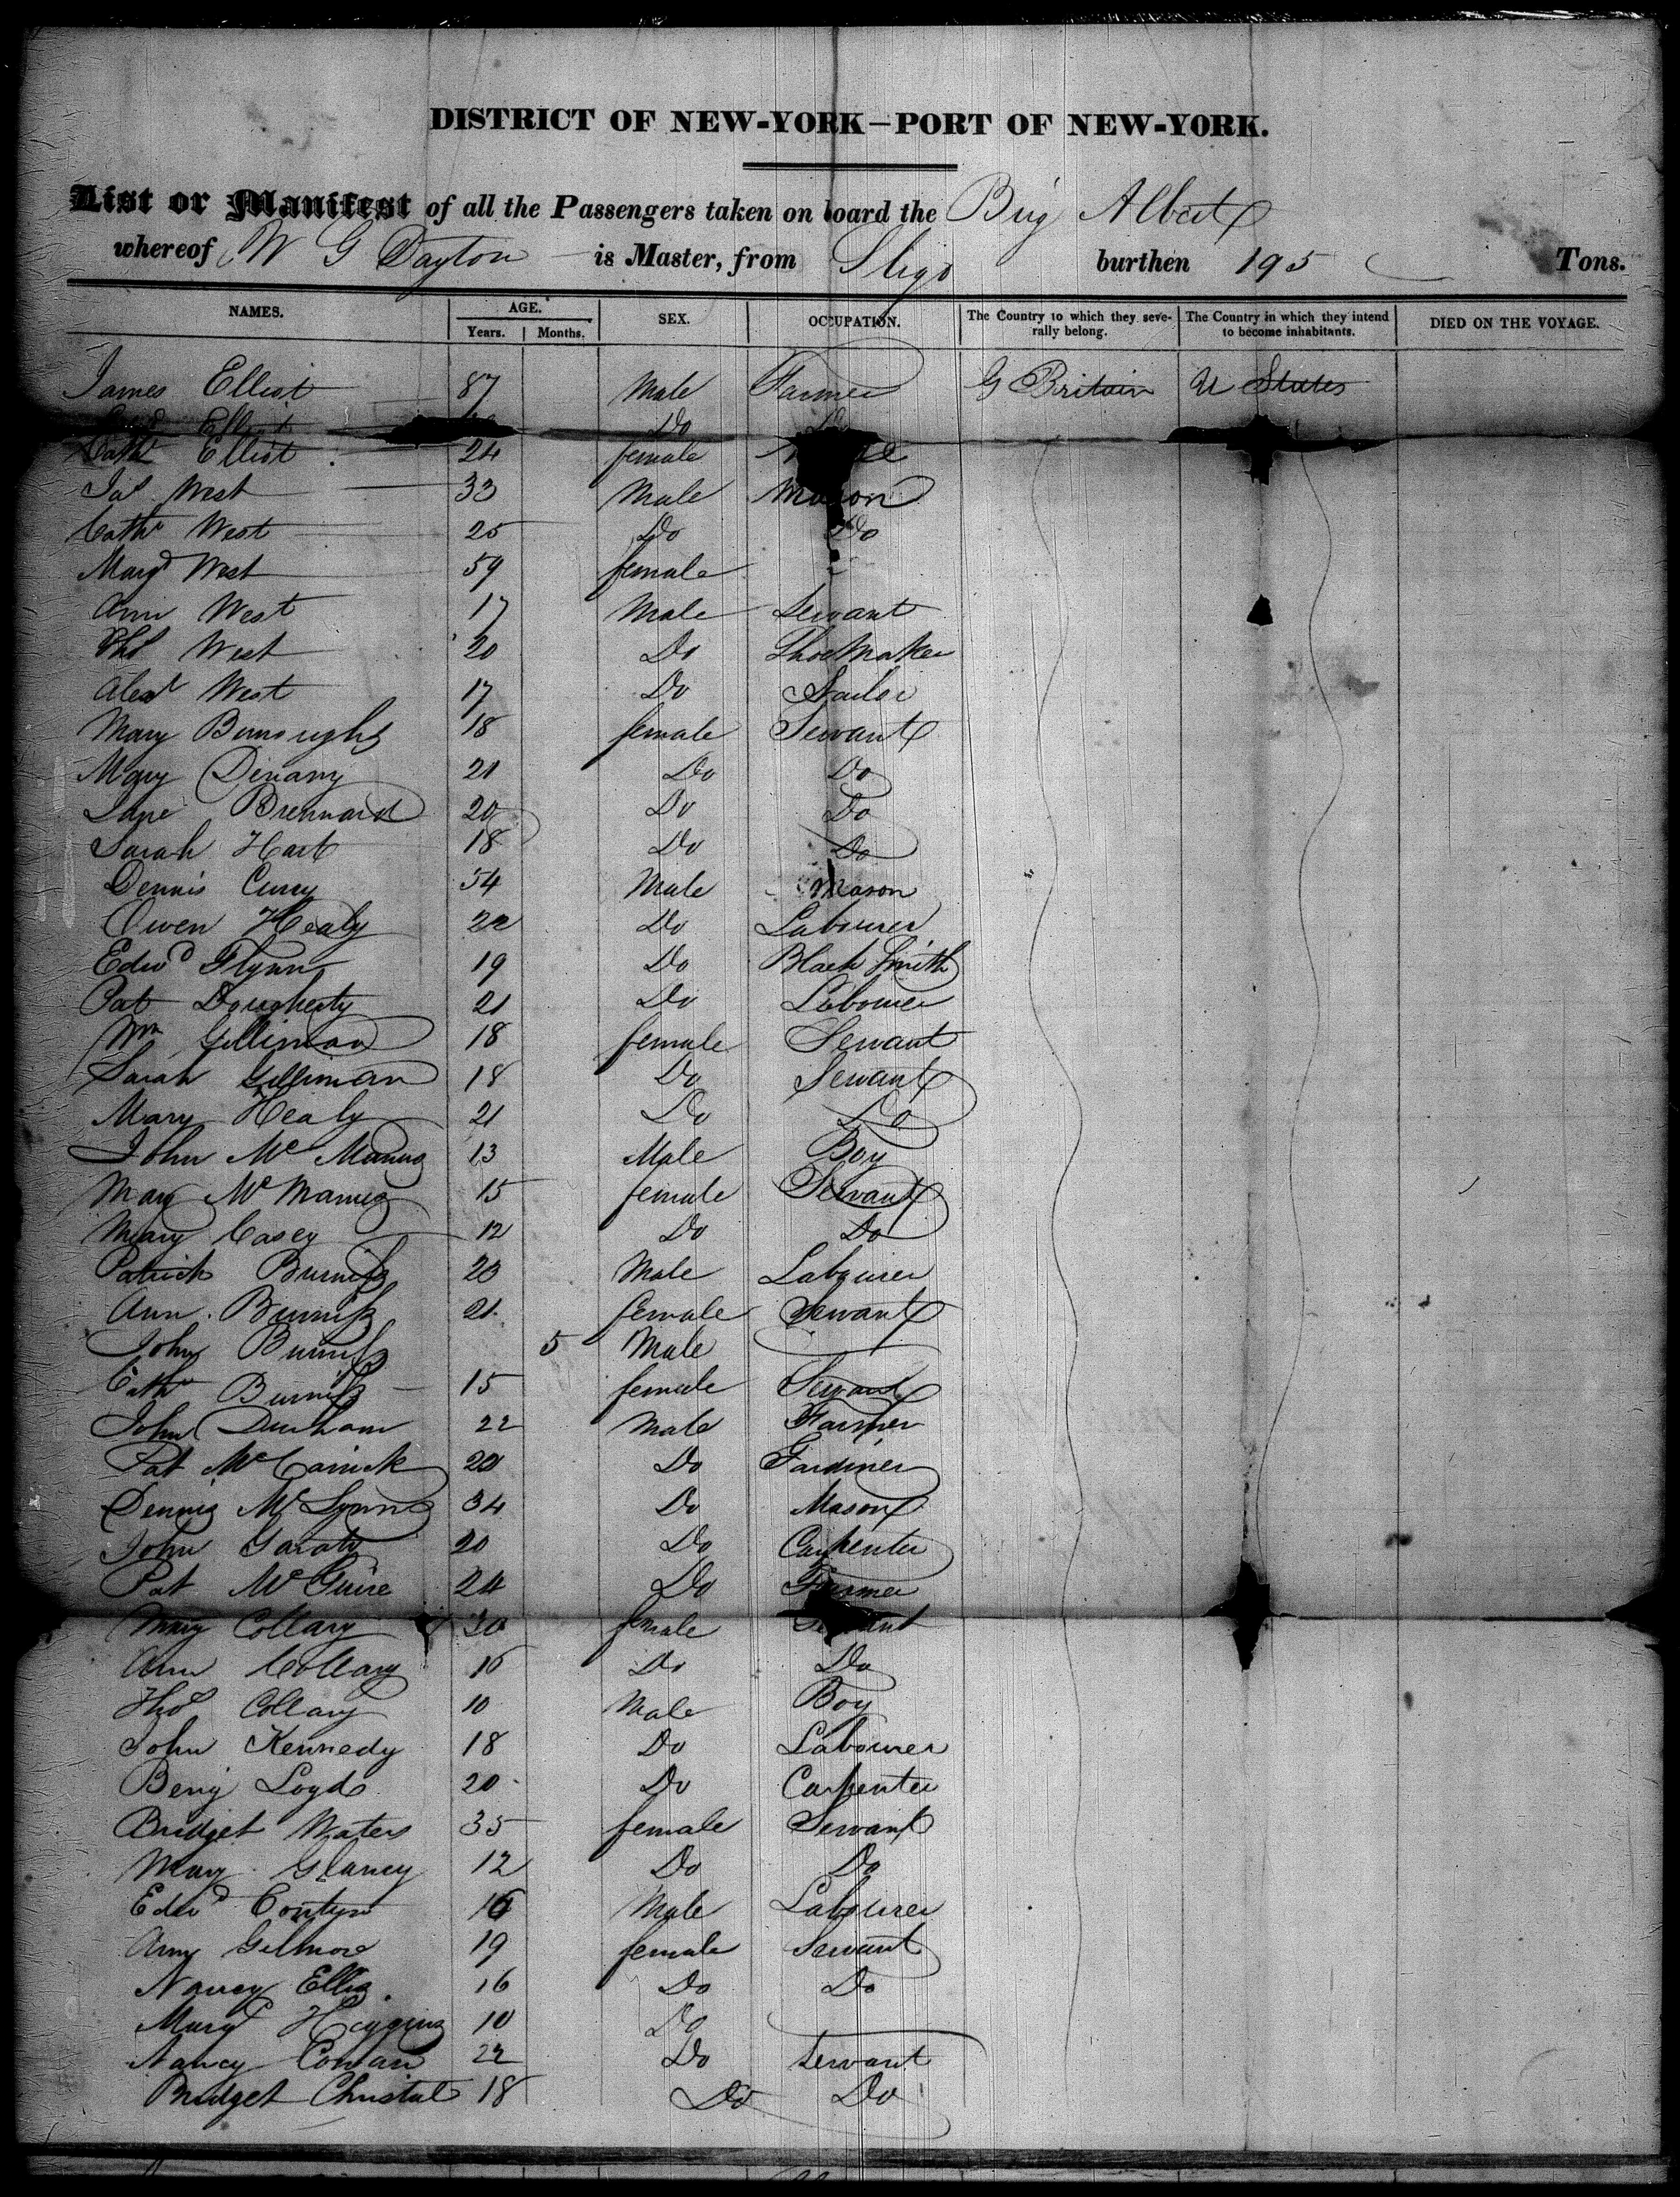 DISTRICT OF NEW-YORK—PORT OF NEW-YORK.
List or Manifest of all the Passengers taken on board the Brig Albert
whereof W G Dayton is Master, from Sligo burthen 195 Tons.
NAMES. AGE. SEX. OCCUPATION. The Country to which they severally belong. The Country in which they intend to become inhabitants. DIED ON THE VOYAGE.
Years. Months.
James Elliot 87 Male Farmer G Britain U States
Elliot Do Do
Cathe Elliot 24 female
Jas West 33 Male Mason
Cathe West 25 Do Do
Margt West 59 female
Ann West 17 Male Servant
Ths West 20 Do Shoe Maker
Alexr West 17 Do Sailor
Mary Burroughs 18 female Servant
Mary 21 Do Do
Jane Brennard 20 Do Do
Sarah Hart 18 Do Do
Dennis Curry 54 Male Mason
Owen Healy 22 Do Labourer
Edwd Flynn 19 Do Black Smith
Pat Dougherty 21 Do Labourer
Wm Gilliman 18 female Servant
Sarah Gilliman 18 Do Servant
Mary Healy 21 Do Do
John Mc Manus 13 Male Boy
Mary Mc Manus 15 female Servant
Mary Casey 12 Do Do
Patrick 23 Male Labourer
Ann 21 female Servant
John 5 Male
Cathe 15 female Servant
John Durham 22 Male Farmer
Pat Mc Carrick 20 Do Gardiner
Dennis Mc Lynn 34 Do Mason
John 20 Do Carpenter
Pat Mc Guire 24 Do Farmer
Mary Collary 30 female Servant
Ann Collary 16 Do Do
Thos Collary 10 Male Boy
John Kennedy 18 Do Labourer
Benj Loyd 20 Do Carpenter
Bridget Waters 35 female Servant
Mary Glancy 12 Do Do
Edwd 16 Male Labourer
Amy Gilmore 19 female Servant
Nancy Ellis 16 Do Do
Margt Higgins 10 Do
Nancy Cowan 22 Do Servant
Bridget Christal 18 Do Do